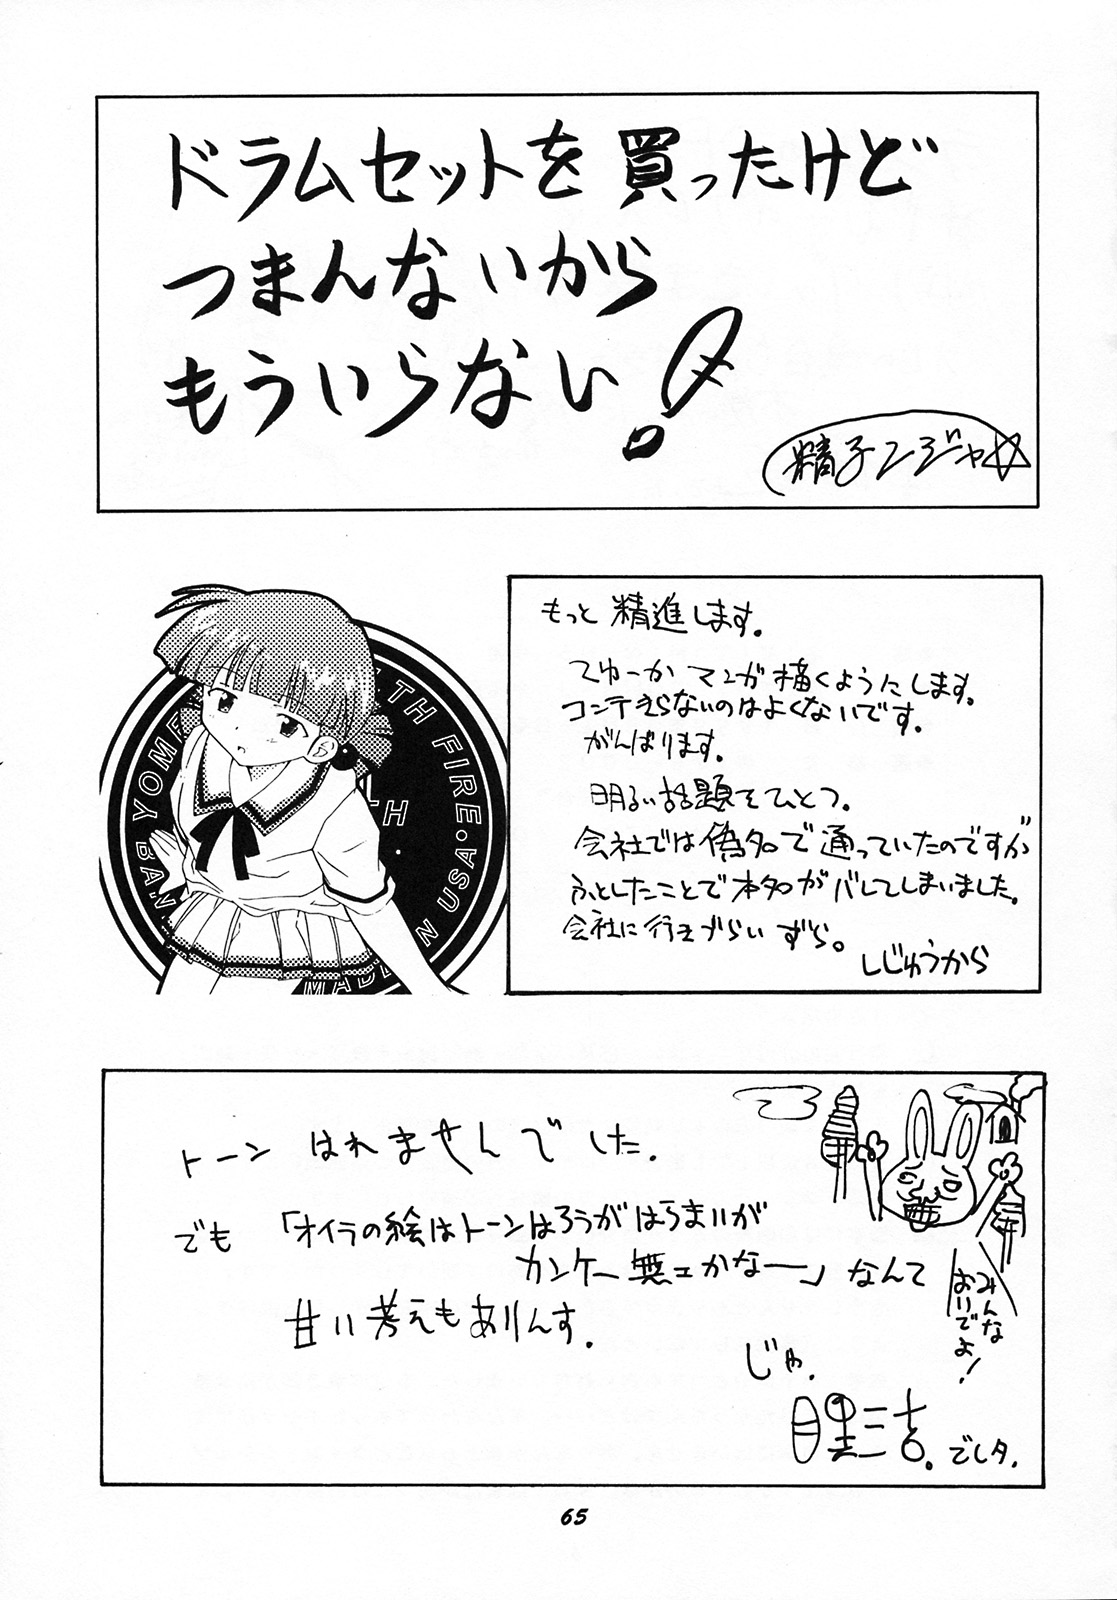 ドラムセットを買ったけど
つまんないから
もういらない!
精子ンジャ☆
もっと精進します。
てゆーかマンガ描くようにします。
コンテきらないのはよくないです。
がんばります。
明るい話題をひとつ。
会社では偽名で通っていたのですが
ふとしたことで本名がバレてしまいました。
会社に行きづらいずら。
しじゅうから
FIRE・USA・
MADE IN
BABYOME
トーンはれませんでした.
でも「オイラの絵はトーンはろうがはらまいが
カンケー無エかなー」なんて
甘い考えもありんす.
じゃ.
三吉。でしタ.
みんな
おいでよ!
65